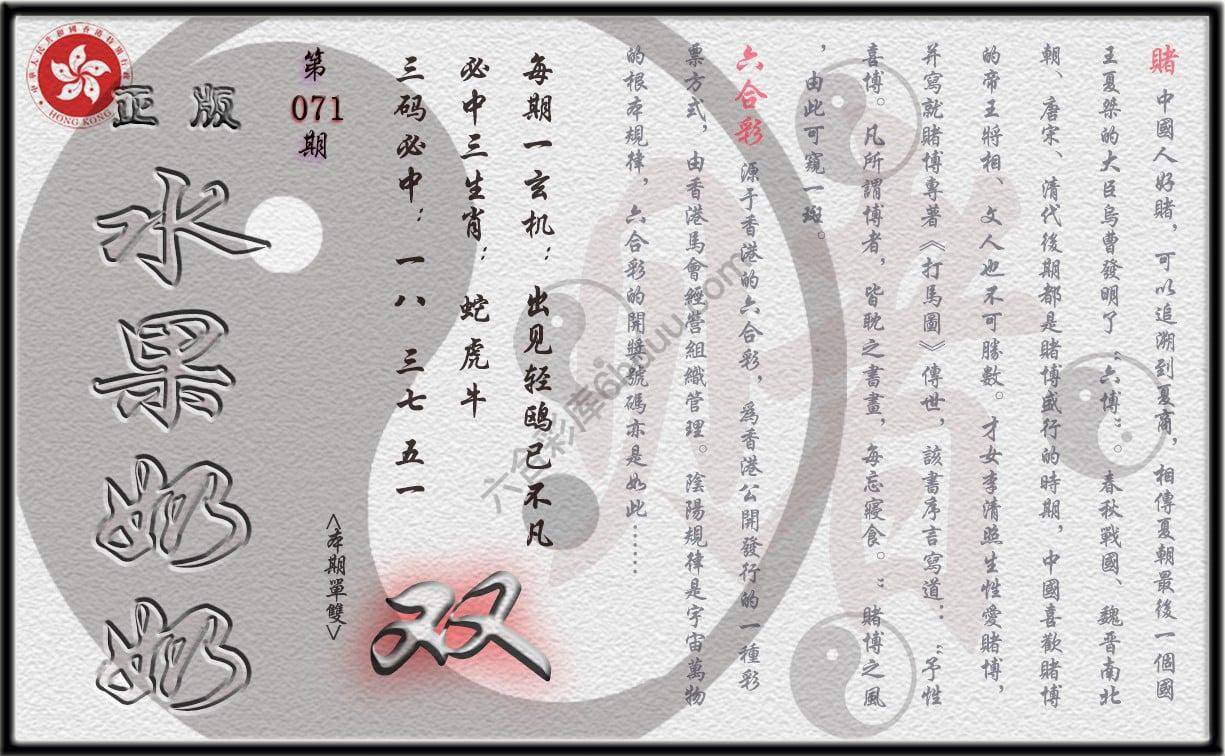 賭 中國人好賭，可以追溯到夏商，相傳夏朝最後一個國
王夏桀的大臣烏曹發明了“六博”。春秋戰國、魏晋南北
朝、唐宋、清代後期都是賭博盛行的時期，中國喜歡賭博
的帝王將相、文人也不可勝數。才女李清照生性愛賭博，
并寫就賭博專著《打馬圖》傳世，該書序言寫道：“予性
喜博。凡所謂博者，皆耽之書畫，每忘寢食。”賭博之風
，由此可窺一斑。
六合彩 源于香港的六合彩，爲香港公開發行的一種彩
票方式，由香港馬會經營組織管理。陰陽規律是宇宙萬物
的根本規律，六合彩的開獎號碼亦是如此……
每期一玄机：出见轻鸥已不凡
必中三生肖：蛇虎牛
三码必中：一八 三七 五一
第
071
期
<本期單雙>
双
正版
水果奶奶
中華人民共和國香港特別行政區
HONG KONG
六合彩库6huuu.com